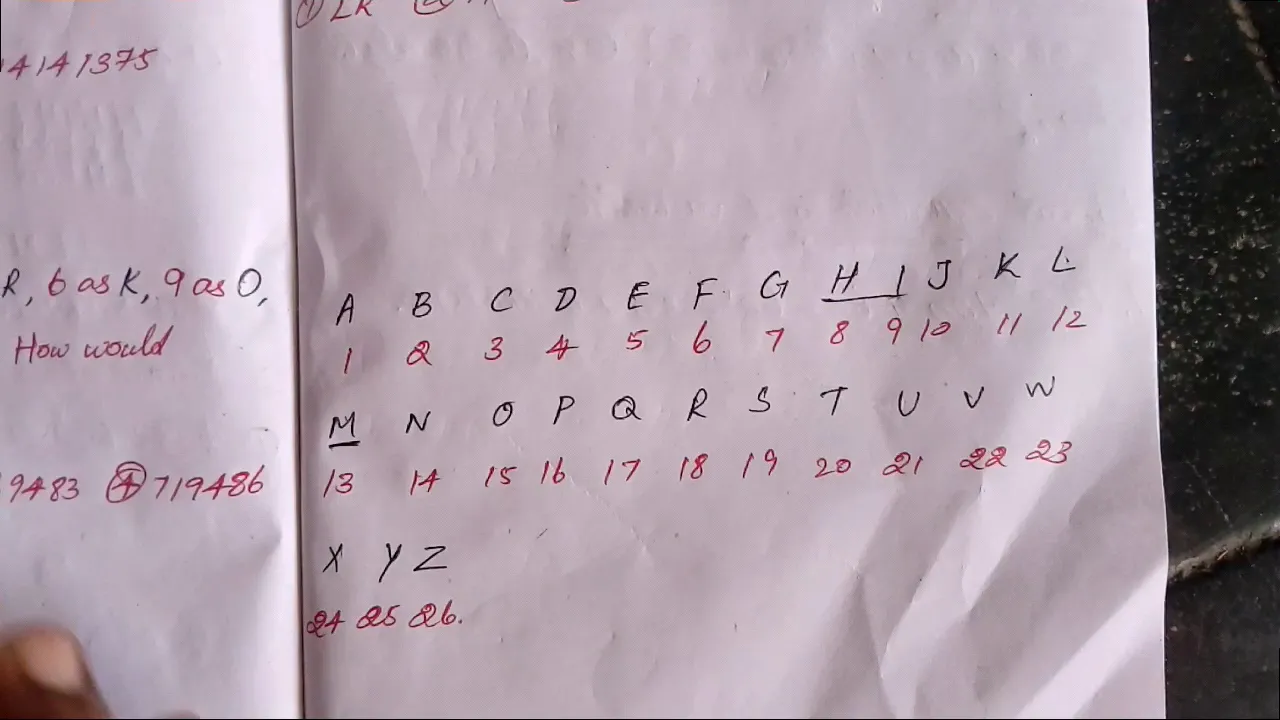 4141375
R, 6 as K, 9 as O,
How would
9483 ④ 719486
① LR
A B C D E F G H I J K L
1 2 3 4 5 6 7 8 9 10 11 12
M N O P Q R S T U V W
13 14 15 16 17 18 19 20 21 22 23
X Y Z
24 25 26.